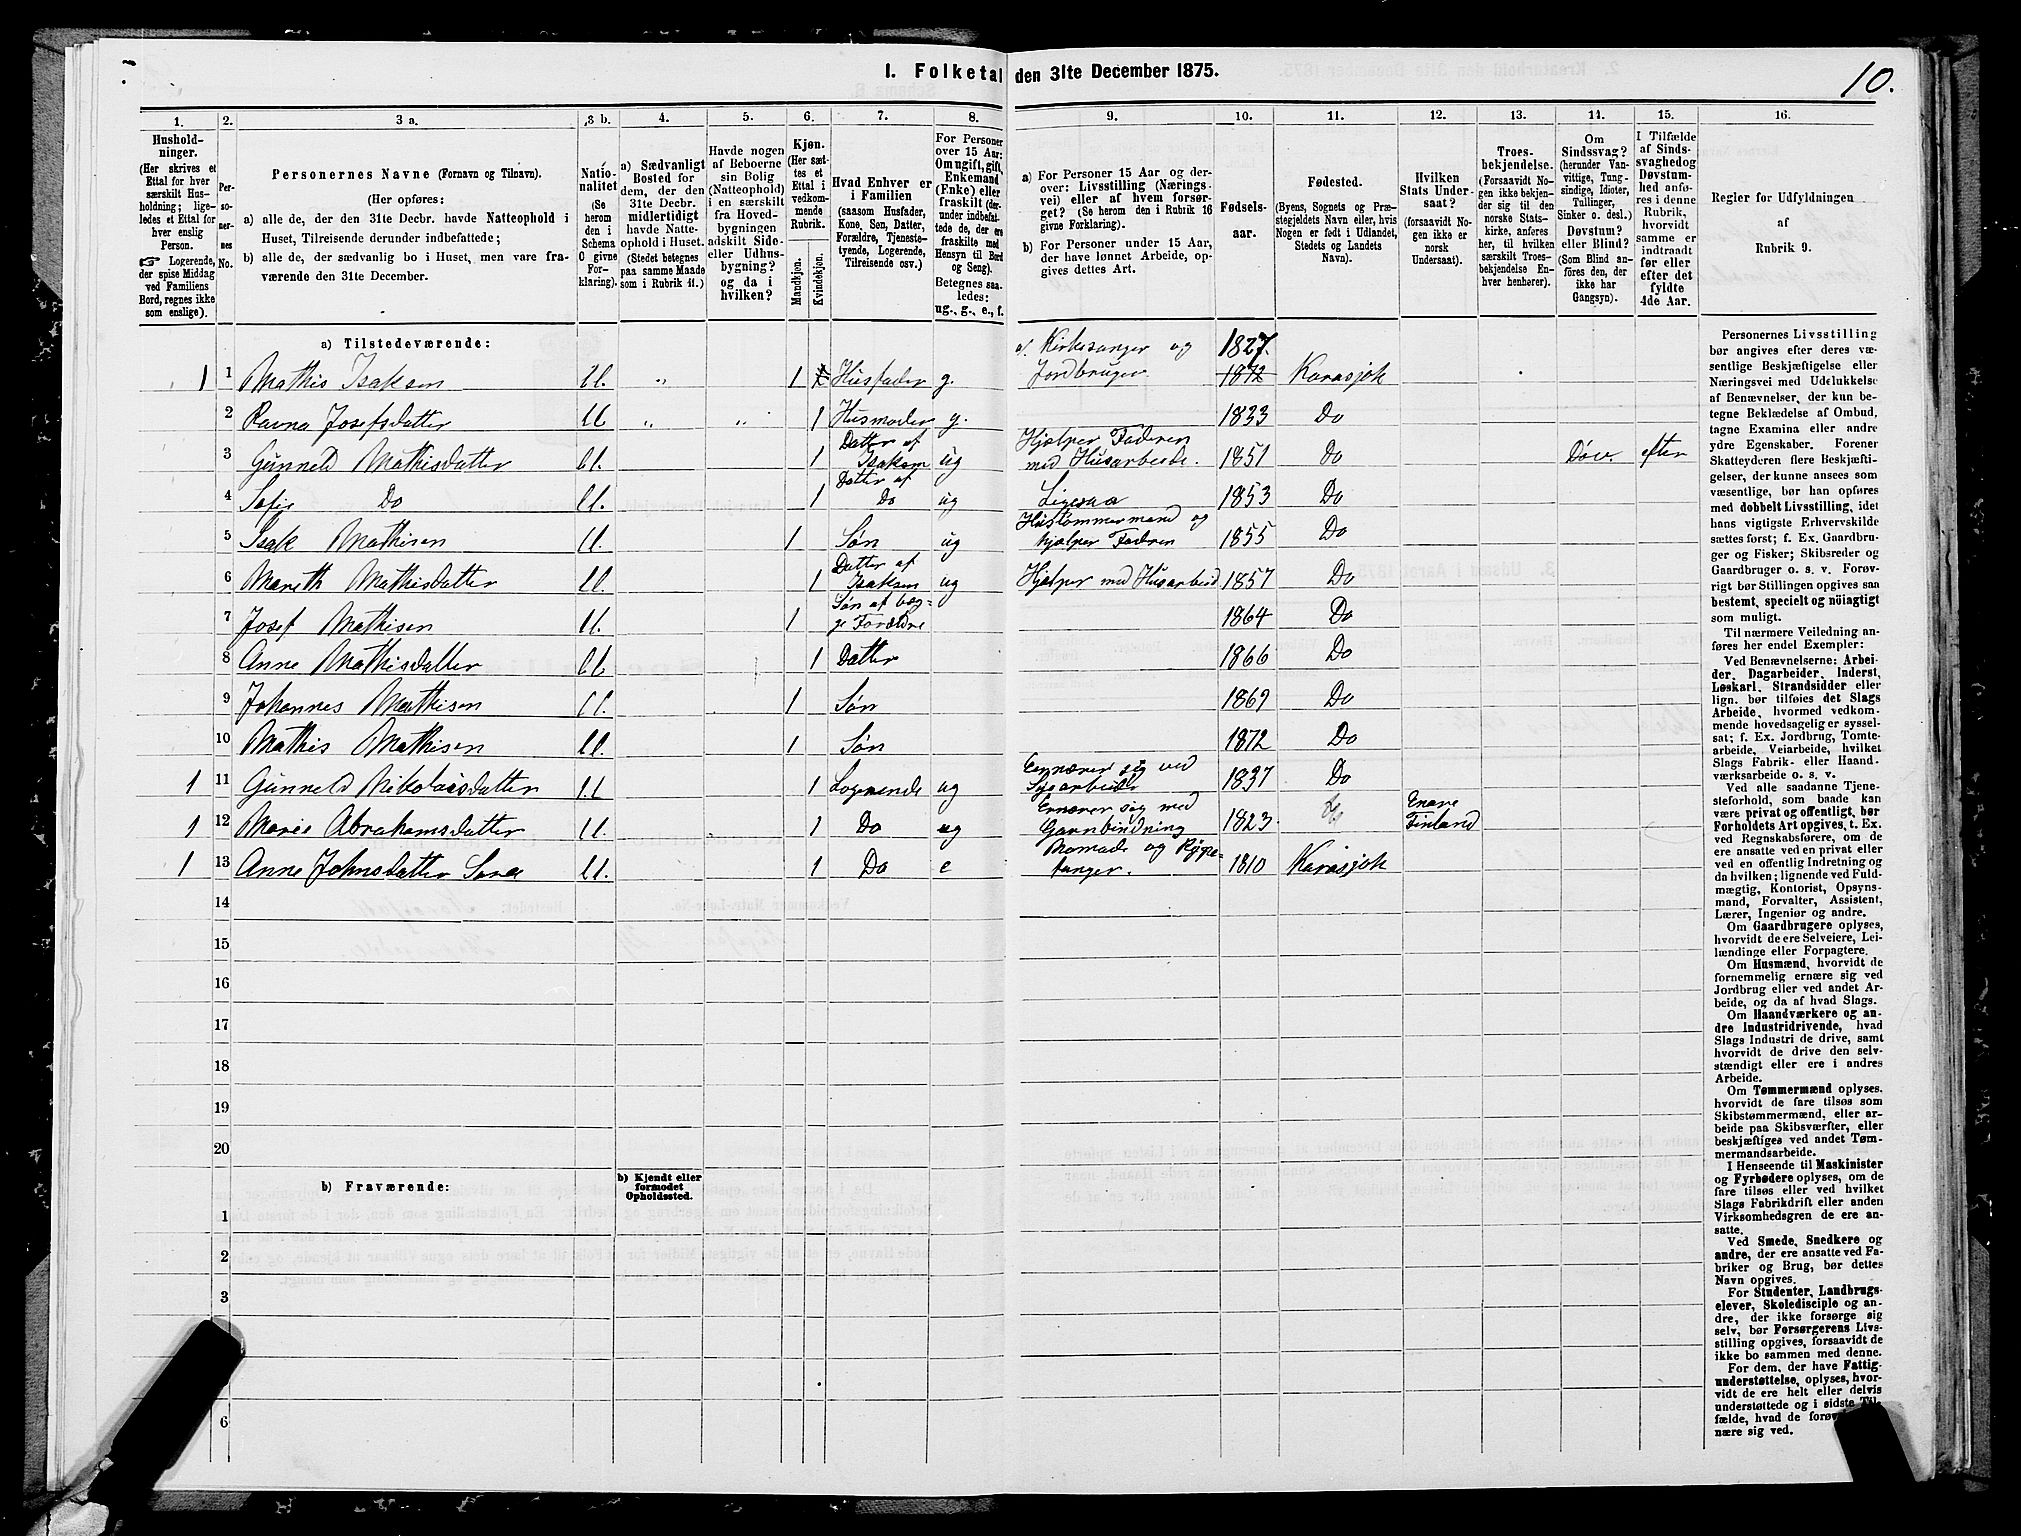 I. Folketal den 31te December 1875.
10.
1. 2. 3 a. 3 b. 4. 5. 6. 7. 8. 9. 10. 11. 12. 13. 14. 15. 16.
Hushold-
ninger.
(Her skrives et
Ettal for hver
særskilt Hus-
holdning; lige-
ledes et Ettal for
hver enslig
Person.
☞ Logerende,
der spise Middag
ved Familiens
Bord, regnes ikke
som enslige).
Per-
so-
ner-
nes
No.
Personernes Navne (Fornavn og Tilnavn).
(Her opføres:
a) alle de, der den 31te Decbr. havde Natteophold i
Huset, Tilreisende derunder indbefattede;
b) alle de, der sædvanlig bo i Huset, men vare fra-
værende den 31te December.
Natio-
nalitet
(Se
herom
den i
Schema
C givne
For-
klaring).
a) Sædvanligt
Bosted for
dem, der den
31te Decbr.
midlertidigt
havde Natte-
ophold i Huset.
(Stedet betegnes
paa samme Maade
som i Rubrik 11.)
Havde nogen
af Beboerne
sin Bolig
(Natteophold)
i en særskilt
fra Hoved-
bygningen
adskilt Side-
eller Udhus-
bygning?
og da i
hvilken?
Kjøn.
(Her sæt-
tes et
Ettal i
vedkom-
mende
Rubrik.
Mandkjøn.
Kvindekjøn.
Hvad Enhver er
i Familien
(saasom Husfader,
Kone, Søn, Datter,
Forældre, Tjeneste-
tyende, Logerende,
Tilreisende osv.)
For Personer
over 15 Aar:
Om ugift, gift,
Enkemand
(Enke) eller
fraskilt (der-
under indbefat-
tede de, der ere
fraskilte med
Hensyn til Bord
og Seng).
Betegnes saa-
ledes:
ug., g., e., f.
a) For Personer 15 Aar og der-
over: Livsstilling (Nærings-
vei) eller af hvem forsør-
get? (Se herom den i Rubrik 16
givne Forklaring).
b) For Personer under 15 Aar,
der have lønnet Arbeide, op-
gives dettes Art.
Fødsels-
aar.
Fødested.
(Byens, Sognets og Præ-
stegjeldets Navn eller, hvis
Nogen er født i Udlandet,
Stedets og Landets
Navn).
Hvilken
Stats Under-
saat?
(forsaavidt No-
gen ikke er
norsk
Undersaat).
Troes-
bekjendelse.
(Forsaavidt No-
gen ikke bekjen-
der sig til den
norske Stats-
kirke, anføres
her, til hvilken
særskilt Troes-
bekjendelse En-
hver henhører).
Om
Sindssvag?
(herunder Van-
vittige, Tung-
sindige, Idioter,
Tullinger,
Sinker o. desl.)
Døvstum?
eller Blind?
(Som Blind an-
føres den, der
ikke har
Gangsyn).
I Tilfælde
af Sinds-
svaghed og
Døvstum-
hed anfø-
res i denne
Rubrik,
hvorvidt
samme er
indtraadt
før eller
efter det
fyldte
4de Aar.
Regler for Udfyldningen
af
Rubrik 9.
a) Tilstedeværende:
1 1 Mathis Isaksen ll. „ 1 Husfader g. a). Kirkesanger og Jordbruger 1827. 1872 Karasjok
2 Ravna Josefsdatter ll „ „ 1 Husmoder g. 1833 Do
3 Gunneld Mathisdatter ll. 1 Datter af Isaksen ug Hjælper Faderen med Husarbeide. 1851 Do Døv. efter
4 Sofie Do ll. 1 Datter af Do ug Ligesaa 1853 Do
5 Isak Mathisen ll. 1 Søn ug Hustømmermand og hjælper Faderen 1855 Do
6 Mareth Mathisdatter ll. 1 Datter af Isaksen ug Hjælper med Husarbeid 1857 Do
7 Josef Mathisen ll. 1 Søn af beg- ge Forældre 1864 Do
8 Anne Mathisdatter ll 1 Datter 1866 Do
9 Johannes Mathisen ll. 1 Søn 1869 Do
10 Mathis Mathisen ll. 1 Søn 1872 Do
1 11 Gunneld Nikolaisdatter ll 1 Logerende ug Ernærer sig ved Syearbeide 1837 Do
1 12 Marie Abrahamsdatter ll. 1 Do ug Ernærer sig med Garnbindning 1823. Enare Finland
1 13 Anne Johnsdatter Sara ll. 1 Do e Nomade og 1810 Karasjok
14
15
16
17
18
19
20
b) Fraværende:
b) Kjendt eller
formodet
Opholdssted.
1
2
3
6
Personernes Livsstilling
bør angives efter deres væ-
sentlige Beskjæftigelse eller
Næringsvei med Udelukkelse
af Benævnelser, der kun be-
tegne Beklædelse af Ombud,
tagne Examina eller andre
ydre Egenskaber. Forener
Skatteyderen flere Beskjæfti-
gelser, der kunne ansees som
væsentlige, bør han opføres
med dobbelt Livsstilling, idet
hans vigtigste Erhvervskilde
sættes først; f. Ex. Gaardbru-
ger og Fisker; Skibsreder og
Gaardbruger o. s. v. Forøv-
rigt bør Stillingen opgives saa
bestemt, specielt og nöiagtigt
som muligt.
Til nærmere Veiledning an-
føres her endel Exempler:
Ved Benævnelserne: Arbei-
der, Dagarbeider, Inderst,
Løskarl, Strandsidder eller
lign. bør tilføies det Slags
Arbeide, hvormed vedkom-
mende hovedsagelig er syssel-
sat; f. Ex. Jordbrug, Tomte-
arbeide, Veiarbeide, hvilket
Slags Fabrik- eller Haand-
værksarbeide o. s. v.
Ved alle saadanne Tjene-
steforhold, som baade kan
være privat og offentligt, bør
Forholdets Art opgives, t. Ex.
ved Regnskabsførere, om de
ere ansatte ved en privat eller
ved en offentlig Indretning og
da hvilken; lignende ved Fuld-
mægtig, Kontorist, Opsyns-
mand, Forvalter, Assistent,
Lærer, Ingeniør og andre.
Om Gaardbrugere oplyses,
hvorvidt de ere Selveiere, Lei-
lændinge eller Forpagtere.
Om Husmænd, hvorvidt de
fornemmelig ernære sig ved
Jordbrug eller ved andet Ar-
beide, og da af hvad Slags.
Om Haandværkere og an-
dre Industridrivende, hvad
Slags Industri de drive, samt
hvorvidt de drive den selv-
stændigt eller ere i andres
Arbeide.
Om Tømmermænd oplyses,
hvorvidt de fare tilsøs som
Skibstømmermænd, eller ar-
beide paa Skibsværfter, eller
beskjæftiges ved andet Tøm-
mermandsarbeide.
I Henseende til Maskinister
og Fyrbødere oplyses, om de
fare tilsøs eller ved hvilket
Slags Fabrikdrift eller anden
Virksomhedsgren de ere an-
satte.
Ved Smede, Snedkere og
andre, der ere ansatte ved Fa-
briker og Brug, bør dettes
Navn opgives.
For Studenter, Landbrugs-
elever, Skoledisciple og an-
dre, der ikke forsørge sig
selv, bør Forsørgerens Livs-
stilling opgives, forsaavidt de
ikke bo sammen med denne.
For dem, der have Fattig-
understøttelse, oplyses, hvor-
vidt de ere helt eller delvis
understøttede og i sidste Til-
fælde, hvad de
nære sig ved.